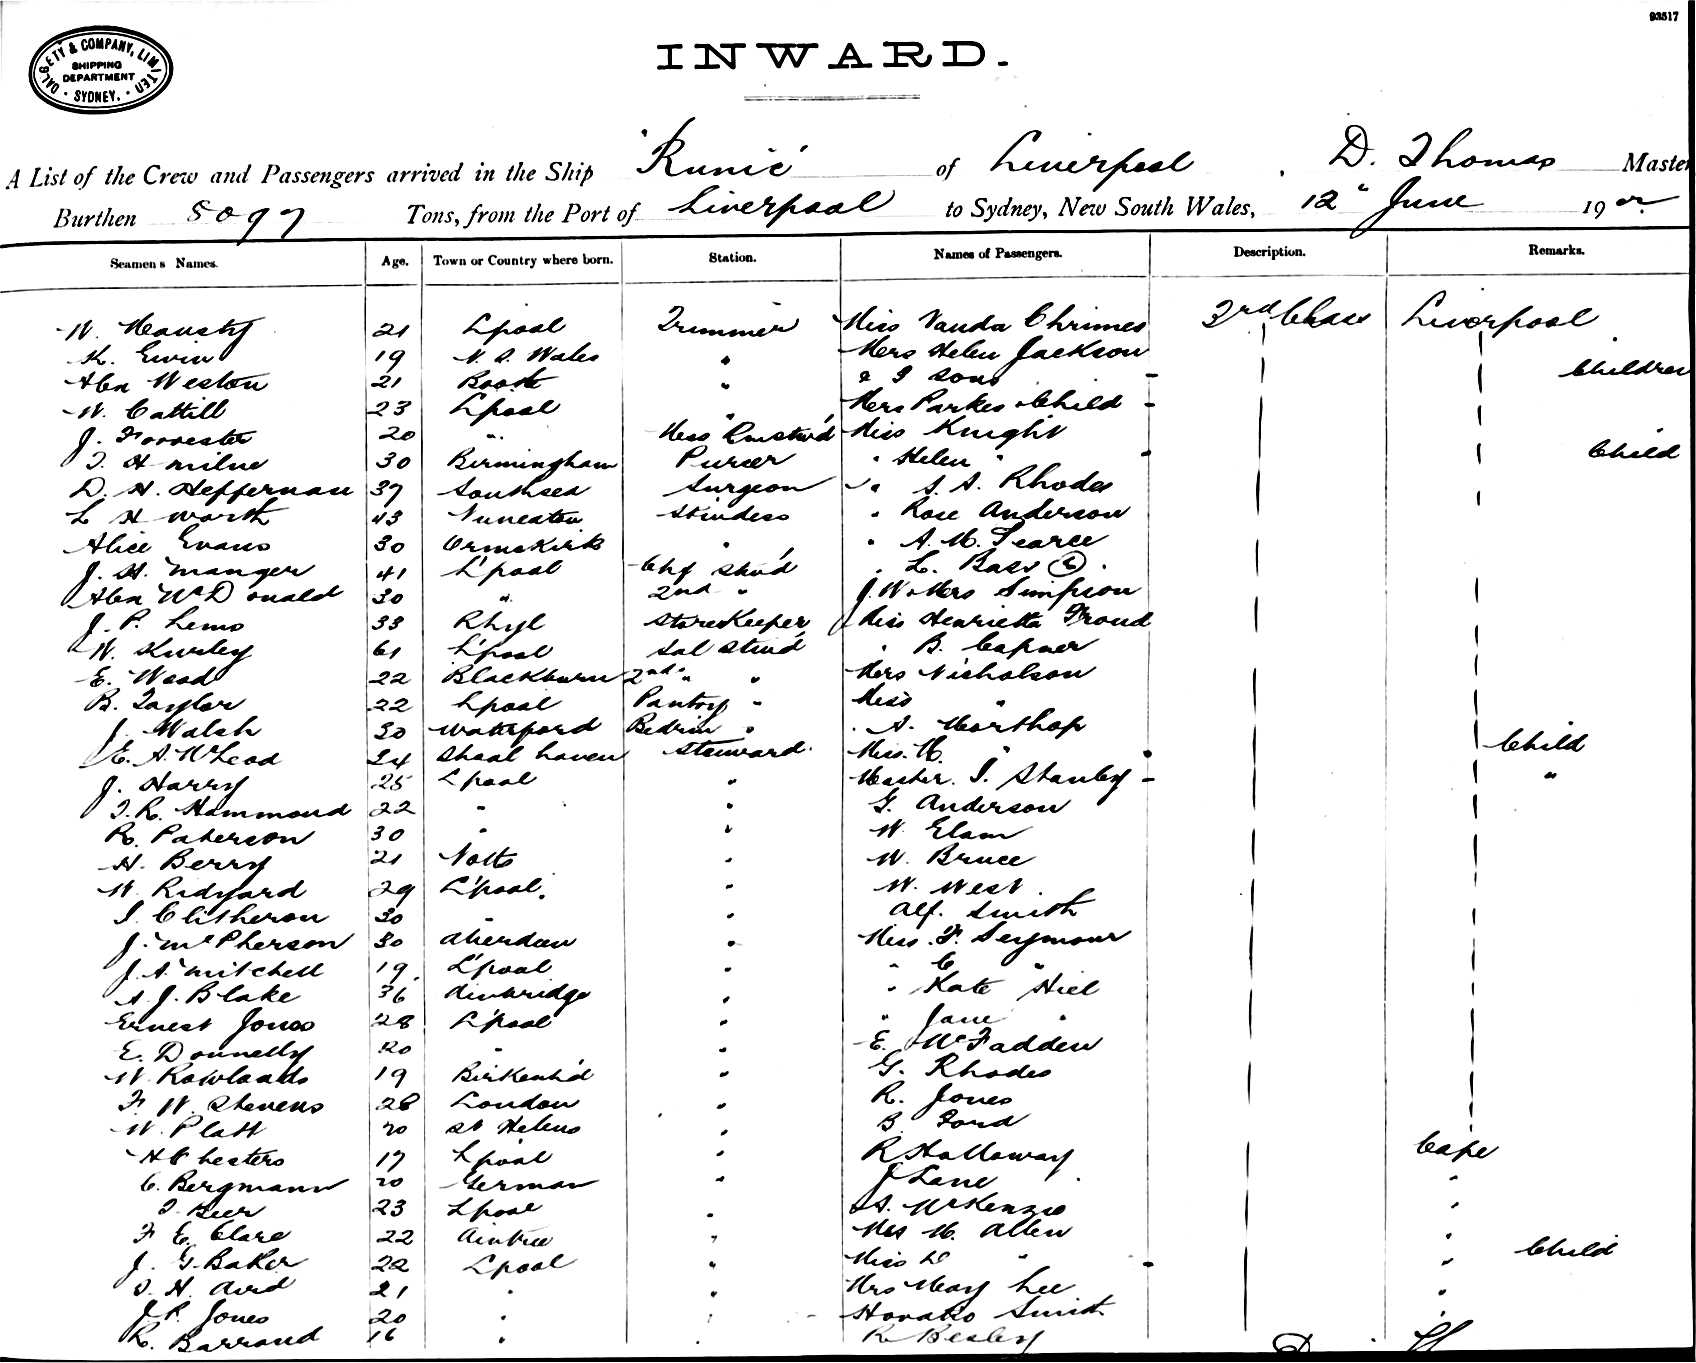 93517
DALGETY & COMPANY, LIMITED
SHIPPING
DEPARTMENT
SYDNEY.
INWARD.
A List of the Crew and Passengers arrived in the Ship "Runic" of Liverpool, D. Thomas Master
Burthen Tons, from the Port of Liverpool to Sydney, New South Wales, 12" June 19
Seamen s Names. Age. Town or Country where born. Station. Names of Passengers. Description. Remarks.
21 L'pool Trimmer Miss Vanda Chrimes 3rd Class Liverpool
19 N. S. Wales " Mrs Helen Jackson
Alex Weston 21 " & 3 sons - Children
W. Cattill 23 L'pool " Mrs Parkes & Child -
J. Forrester 20 " Mess Miss Knight
T. H Milne 30 Birmingham Purser " Helen " - Child
D. H. Heffernan 37 Southsea Surgeon " S. A. Rhodes
L H Worth 43 Nuneaton Stewdess " Rose Anderson
Alice Evans 30 Ormskirk " " A. M. Pearce
J. H. Manger 41 L'pool Chf Stwd " L. Bass
Alex McDonald 30 " 2nd " J. W & Mrs Simpson
J. P. Lemo 33 Rhyl Storekeeper Miss Henrietta Proud
W. 61 L'pool Sal Stwd " B. Capner
E. Wood 22 Blackburn 2nd " " Mrs Nicholson
B. Taylor 22 L'pool Pantry " Miss "
J. Walsh 30 Waterford Bedrm " " A. Northop
E. A. McLeod 24 Shoal haven Steward Miss. M. " - Child
J. Harry 25 L'pool " Master. S. Stanley - "
T. R. Hammond 22 " " G. Anderson
R. Paterson 30 " " W. Elam
H. Berry 21 Notts " W. Bruce
W. Ridyard 29 L'pool. " W. West
J. Clitheron 30 " " Alf. Smith
J. McPherson 30 Aberdeen " Miss. F. Seymour
J. A. Mitchell 19 L'pool " " C "
A. J. Blake 36 " " Kate Hiel
Ernest Jones 28 L'pool " " Jane "
E. Donnelly 20 " " E. McFadden
W. Rowlands 19 Birkenh'd " G. Rhodes
F. W. Stevens 28 London " R. Jones
W. Platt 20 St Helens " B. Ford
H Chesters 17 L'pool " R Halloway Cape
C. Bergmann 20 German " J Lane "
T. Beer 23 L'pool " A. McKenzie "
F E. Clare 22 Aintree " Mrs M. Allen "
J. G. Baker 22 L'pool " Miss " - " Child
T. H. Aird 21 " " Mrs Mary Lee "
J P. Jones 20 " " Horatio Smith "
R. Barrand 16 " " R Besley